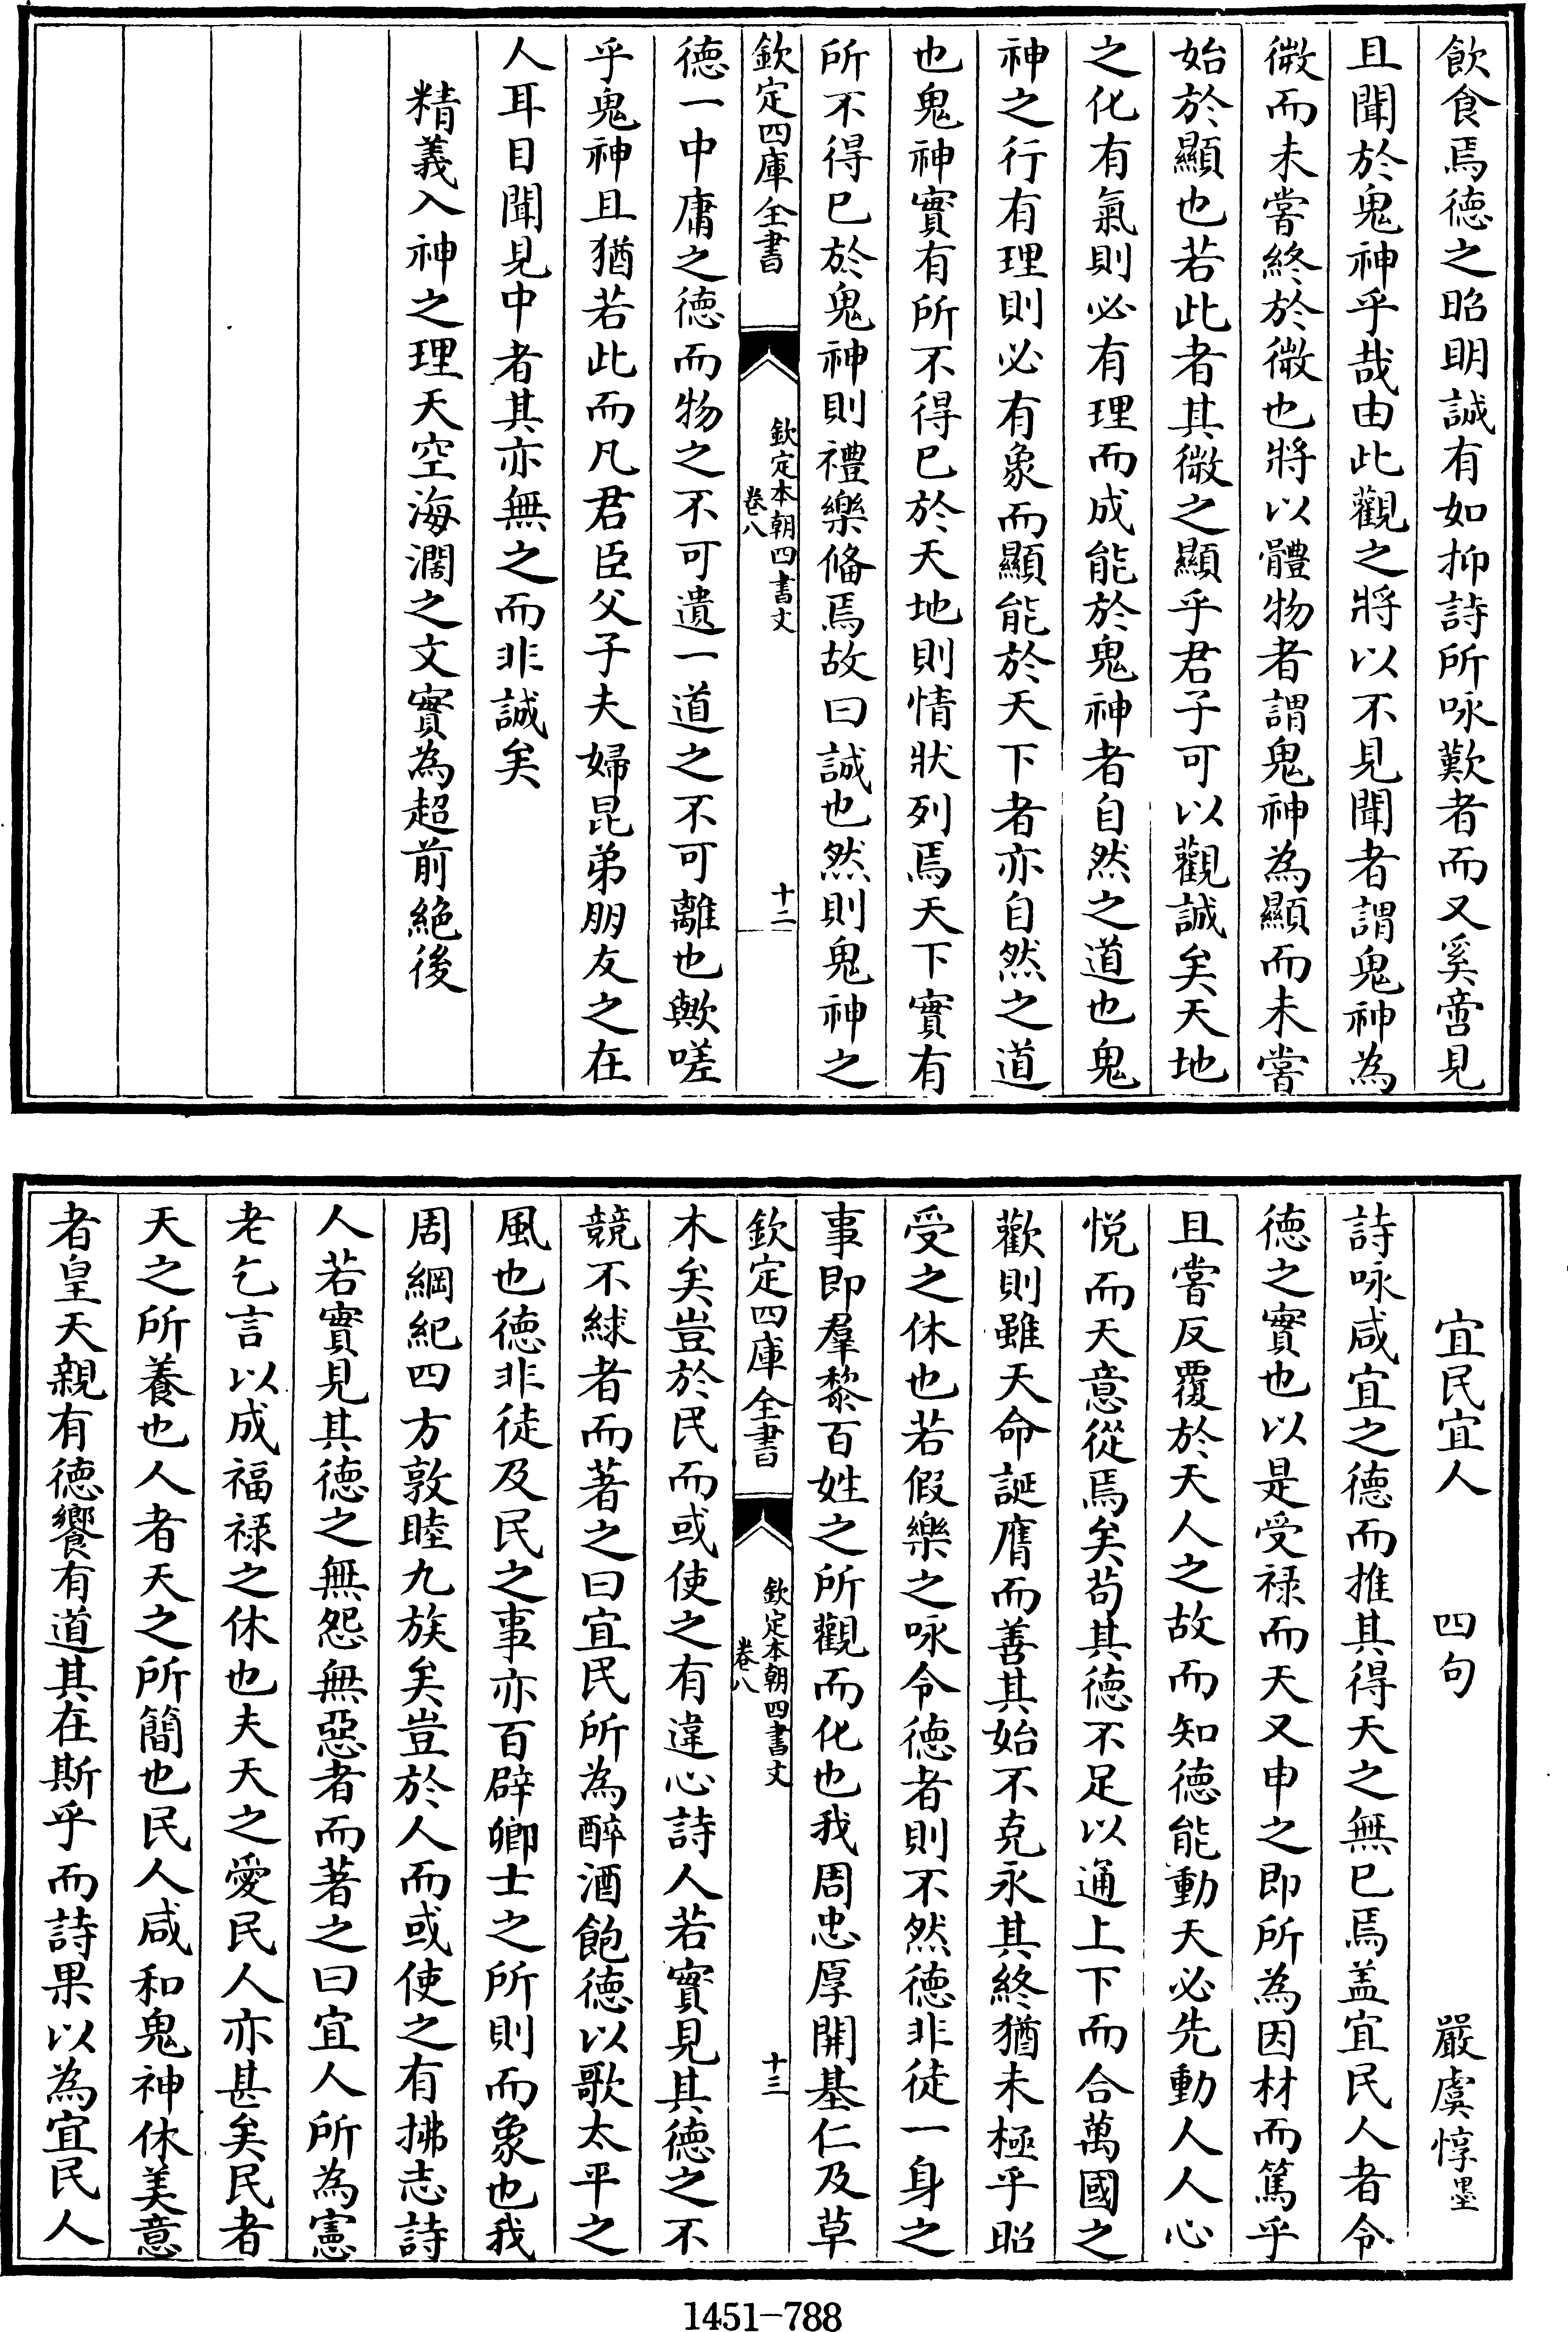 飲食焉徳之昭明誠有如抑詩所咏歎者而又奚啻見
且聞於鬼神乎哉由此觀之將以不見聞者謂鬼神為
微而未嘗終於微也將以體物者謂鬼神為顯而未嘗
始於顯也若此者其微之顯乎君子可以觀誠矣天地
之化有氣則必有理而成能於鬼神者自然之道也鬼
神之行有理則必有象而顯能於天下者亦自然之道
也鬼神實有所不得已於天地則情狀列焉天下實有
所不得已於鬼神則禮樂偹焉故曰誠也然則鬼神之
欽定四庫全書
欽定本朝四書文
卷八
十二
徳一中庸之徳而物之不可遺一道之不可離也歟嗟
乎鬼神且猶若此而凡君臣父子夫婦昆弟朋友之在
人耳目聞見中者其亦無之而非誠矣
精義入神之理天空海濶之文實為超前絶後
宜民宜人 四句 嚴虞惇墨
詩咏咸宜之徳而推其得天之無已焉盖宜民人者令
徳之實也以是受禄而天又申之即所為因材而篤乎
且嘗反覆於天人之故而知徳能動天必先動人人心
悦而天意從焉矣茍其徳不足以通上下而合萬國之
歡則雖天命誕膺而善其始不克永其終猶未極乎昭
受之休也若假樂之咏令徳者則不然徳非徒一身之
事即羣黎百姓之所觀而化也我周忠厚開基仁及草
欽定四庫全書
欽定本朝四書文
卷八
十三
木矣豈於民而或使之有違心詩人若實見其徳之不
競不絿者而著之曰宜民所為醉酒飽徳以歌太平之
風也徳非徒及民之事亦百辟卿士之所則而象也我
周綱紀四方敦睦九族矣豈於人而或使之有拂志詩
人若實見其徳之無怨無惡者而著之曰宜人所為憲
老乞言以成福禄之休也夫天之愛民人亦甚矣民者
天之所養也人者天之所簡也民人咸和鬼神休美意
者皇天親有徳饗有道其在斯乎而詩果以為宜民人
1451-788